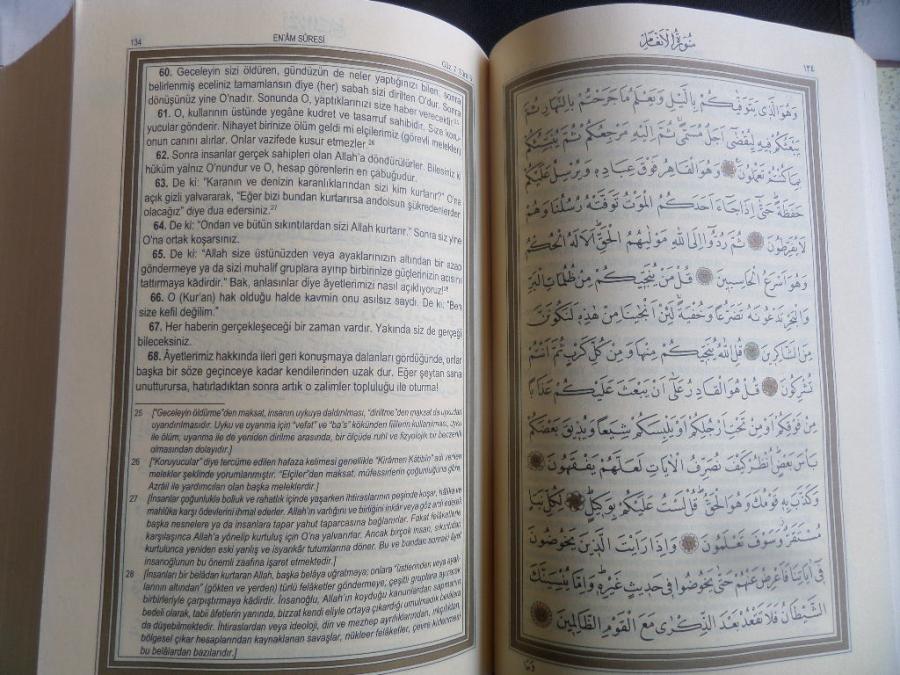 134
EN'ÂM SÛRESİ
60. Geceleyin sizi öldüren, gündüzün de neler yaptığınızı bilen, sonra
belirlenmiş eceliniz tamamlansın diye (her) sabah sizi dirilten O'dur. Sonra
dönüşünüz yine O'nadır. Sonunda O, yaptıklarınızı size haber verecektir.25
61. O, kullarının üstünde yegâne kudret ve tasarruf sahibidir. Size koru-
yucular gönderir. Nihayet birinize ölüm geldi mi elçilerimiz (görevli melekler)
onun canını alırlar. Onlar vazifede kusur etmezler.26
62. Sonra insanlar gerçek sahipleri olan Allah'a döndürülürler. Bilesiniz ki
hüküm yalnız O'nundur ve O, hesap görenlerin en çabuğudur.
63. De ki: "Karanın ve denizin karanlıklarından sizi kim kurtarır?" O'na
açık gizli yalvararak, "Eğer bizi bundan kurtarırsa andolsun şükredenlerden
olacağız" diye dua edersiniz.27
64. De ki: "Ondan ve bütün sıkıntılardan sizi Allah kurtarır." Sonra siz yine
O'na ortak koşarsınız.
65. De ki: "Allah size üstünüzden veya ayaklarınızın altından bir azap
göndermeye ya da sizi muhalif gruplara ayırıp birbirinize güçlerinizin acısını
tattırmaya kâdirdir." Bak, anlasınlar diye âyetlerimizi nasıl açıklıyoruz!28
66. O (Kur'an) hak olduğu halde kavmin onu asılsız saydı. De ki: "Ben
size kefil değilim."
67. Her haberin gerçekleşeceği bir zaman vardır. Yakında siz de gerçeği
bileceksiniz.
68. Âyetlerimiz hakkında ileri geri konuşmaya dalanları gördüğünde, onlar
başka bir söze geçinceye kadar kendilerinden uzak dur. Eğer şeytan sana
unutturursa, hatırladıktan sonra artık o zalimler topluluğu ile oturma!
25 ["Geceleyin öldürme"den maksat, insanın uykuya daldırılması, "diriltme"den maksat da uykudan
uyandırılmasıdır. Uyku ve uyanma için "vefat" ve "ba's" kökünden fiillerin kullanılması, uyku
ile ölüm, uyanma ile de yeniden dirilme arasında, bir ölçüde ruhî ve fizyolojik bir benzerlik
olmasından dolayıdır.]
26 ["Koruyucular" diye tercüme edilen hafaza kelimesi genellikle "Kirâmen Kâtibîn" adı verilen
melekler şeklinde yorumlanmıştır. "Elçiler"den maksat, müfessirlerin çoğunluğuna göre,
Azrâil ile yardımcıları olan başka meleklerdir.]
27 [İnsanlar çoğunlukla bolluk ve rahatlık içinde yaşarken ihtiraslarının peşinde koşar, hâlika ve
mahlûka karşı ödevlerini ihmal ederler. Allah'ın varlığını ve birliğini inkâr veya göz ardı ederek
başka nesnelere ya da insanlara tapar yahut taparcasına bağlanırlar. Fakat felâketlerle
karşılaşınca Allah'a yönelip kurtuluş için O'na yalvarırlar. Ancak birçok insan, sıkıntıdan
kurtulunca yeniden eski yanlış ve isyankâr tutumlarına döner. Bu ve bundan sonraki âyet
insanoğlunun bu önemli zaafına işaret etmektedir.]
28 [İnsanları bir belâdan kurtaran Allah, başka belâya uğratmaya; onlara "üstlerinden veya ayak-
larının altından" (gökten ve yerden) türlü felâketler göndermeye; çeşitli gruplara ayırarak
birbirleriyle çarpıştırmaya kâdirdir. İnsanoğlu, Allah'ın koyduğu kanunlardan sapmanın
bedeli olarak, tabiî âfetlerin yanında, bizzat kendi eliyle ortaya çıkardığı umulmadık belâlara
da düşebilmektedir. İhtiraslardan veya ideoloji, din ve mezhep ayrılıklarından, ırkçılıktan,
bölgesel çıkar hesaplarından kaynaklanan savaşlar, nükleer felâketler, çevre kirlenmesi
bu belâlardan bazılarıdır.]
سُورَةُ الْاَنْعَامِ
١٣٤
وَهُوَ الَّذ۪ي يَتَوَفّٰيكُمْ بِالَّيْلِ وَيَعْلَمُ مَا جَرَحْتُمْ بِالنَّهَارِ ثُمَّ
يَبْعَثُكُمْ ف۪يهِ لِيُقْضٰٓى اَجَلٌ مُسَمًّىۚ ثُمَّ اِلَيْهِ مَرْجِعُكُمْ ثُمَّ يُنَبِّئُكُمْ
بِمَا كُنْتُمْ تَعْمَلُونَ وَهُوَ الْقَاهِرُ فَوْقَ عِبَادِه۪ وَيُرْسِلُ عَلَيْكُمْ
حَفَظَةًۜ حَتّٰٓى اِذَا جَٓاءَ اَحَدَكُمُ الْمَوْتُ تَوَفَّتْهُ رُسُلُنَا وَهُمْ
لَا يُفَرِّطُونَ ثُمَّ رُدُّٓوا اِلَى اللّٰهِ مَوْلٰيهُمُ الْحَقِّۜ اَلَا لَهُ الْحُكْمُ
وَهُوَ اَسْرَعُ الْحَاسِب۪ينَ قُلْ مَنْ يُنَجّ۪يكُمْ مِنْ ظُلُمَاتِ الْبَرِّ
وَالْبَحْرِ تَدْعُونَهُ تَضَرُّعًا وَخُفْيَةًۚ لَئِنْ اَنْجٰينَا مِنْ هٰذِه۪ لَنَكُونَنَّ
مِنَ الشَّاكِر۪ينَ قُلِ اللّٰهُ يُنَجّ۪يكُمْ مِنْهَا وَمِنْ كُلِّ كَرْبٍ ثُمَّ اَنْتُمْ
تُشْرِكُونَ قُلْ هُوَ الْقَادِرُ عَلٰٓى اَنْ يَبْعَثَ عَلَيْكُمْ عَذَابًا
مِنْ فَوْقِكُمْ اَوْ مِنْ تَحْتِ اَرْجُلِكُمْ اَوْ يَلْبِسَكُمْ شِيَعًا وَيُذ۪يقَ بَعْضَكُمْ
بَأْسَ بَعْضٍۜ اُنْظُرْ كَيْفَ نُصَرِّفُ الْاٰيَاتِ لَعَلَّهُمْ يَفْقَهُونَ
وَكَذَّبَ بِه۪ قَوْمُكَ وَهُوَ الْحَقُّۜ قُلْ لَسْتُ عَلَيْكُمْ بِوَك۪يلٍۜ لِكُلِّ نَبَأٍ
مُسْتَقَرٌّۘ وَسَوْفَ تَعْلَمُونَ وَاِذَا رَاَيْتَ الَّذ۪ينَ يَخُوضُونَ
ف۪ٓي اٰيَاتِنَا فَاَعْرِضْ عَنْهُمْ حَتّٰى يَخُوضُوا ف۪ي حَد۪يثٍ غَيْرِه۪ۜ وَاِمَّا يُنْسِيَنَّكَ
الشَّيْطَانُ فَلَا تَقْعُدْ بَعْدَ الذِّكْرٰى مَعَ الْقَوْمِ الظَّالِم۪ينَ